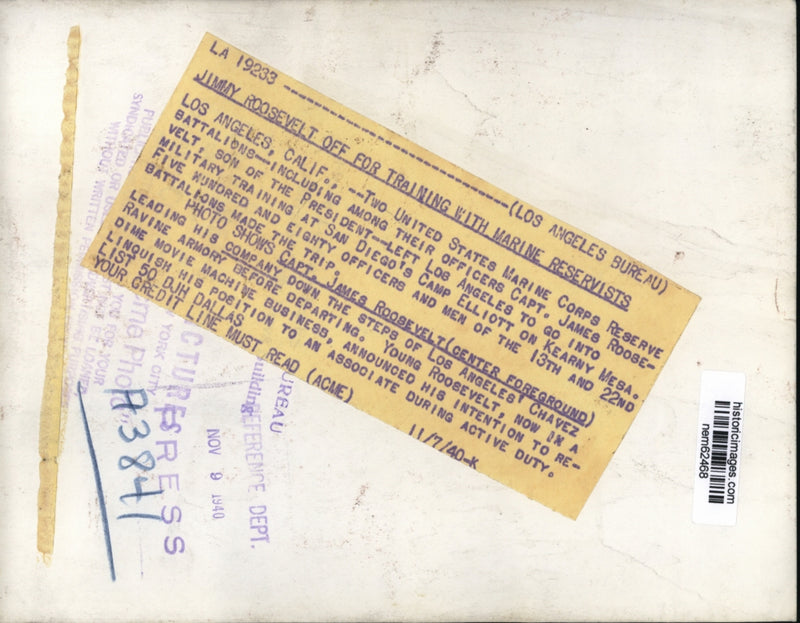 LA 19233 ------------------------(LOS ANGELES BUREAU)
JIMMY ROOSEVELT OFF FOR TRAINING WITH MARINE RESERVISTS
LOS ANGELES, CALIF., --TWO UNITED STATES MARINE CORPS RESERVE
BATTALIONS--INCLUDING AMONG THEIR OFFICERS CAPT. JAMES ROOSE-
VELT, SON OF THE PRESIDENT--LEFT LOS ANGELES TO GO INTO
MILITARY TRAINING AT SAN DIEGO'S CAMP ELLIOTT ON KEARNY MESA.
FIVE HUNDRED AND EIGHTY OFFICERS AND MEN OF THE 13TH AND 22ND
BATTALIONS MADE THE TRIP.
PHOTO SHOWS CAPT. JAMES ROOSEVELT(CENTER FOREGROUND)
LEADING HIS COMPANY DOWN THE STEPS OF LOS ANGELES' CHAVEZ
RAVINE ARMORY BEFORE DEPARTING. YOUNG ROOSEVELT, NOW IN A
DIME MOVIE MACHINE BUSINESS, ANNOUNCED HIS INTENTION TO RE-
LINQUISH HIS POSITION TO AN ASSOCIATE DURING ACTIVE DUTY.
LIST 50 DJH DALLAS
YOUR CREDIT LINE MUST READ (ACME) 11/7/40-K
SYNDICATED OR
WITHOUT WRITTEN
YOU FOR YOUR
BE LOANED
Pho
CTURES
YORK CITY
PRESS
A3841
BUREAU
Building
REFERENCE DEPT.
NOV 9 1940
historicimages.com
nem62468